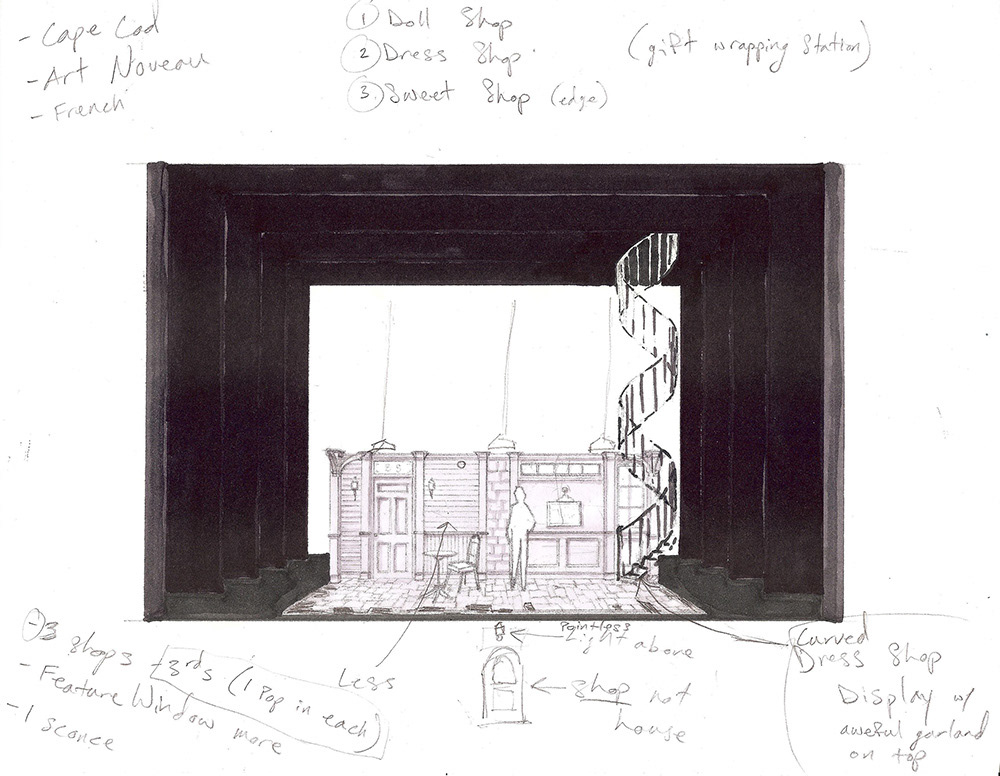 - Cape Cod
- Art Noveau
- French
① Doll Shop
② Dress Shop
③ Sweet Shop (edge)
(gift wrapping station)
3 shops
3rds (1 Pop in each)
- Feature Window more
- 1 sconce
Less
Pointless
Light above
shop not
house
Curved
Dress Shop
Display w/
aweful garland
on top